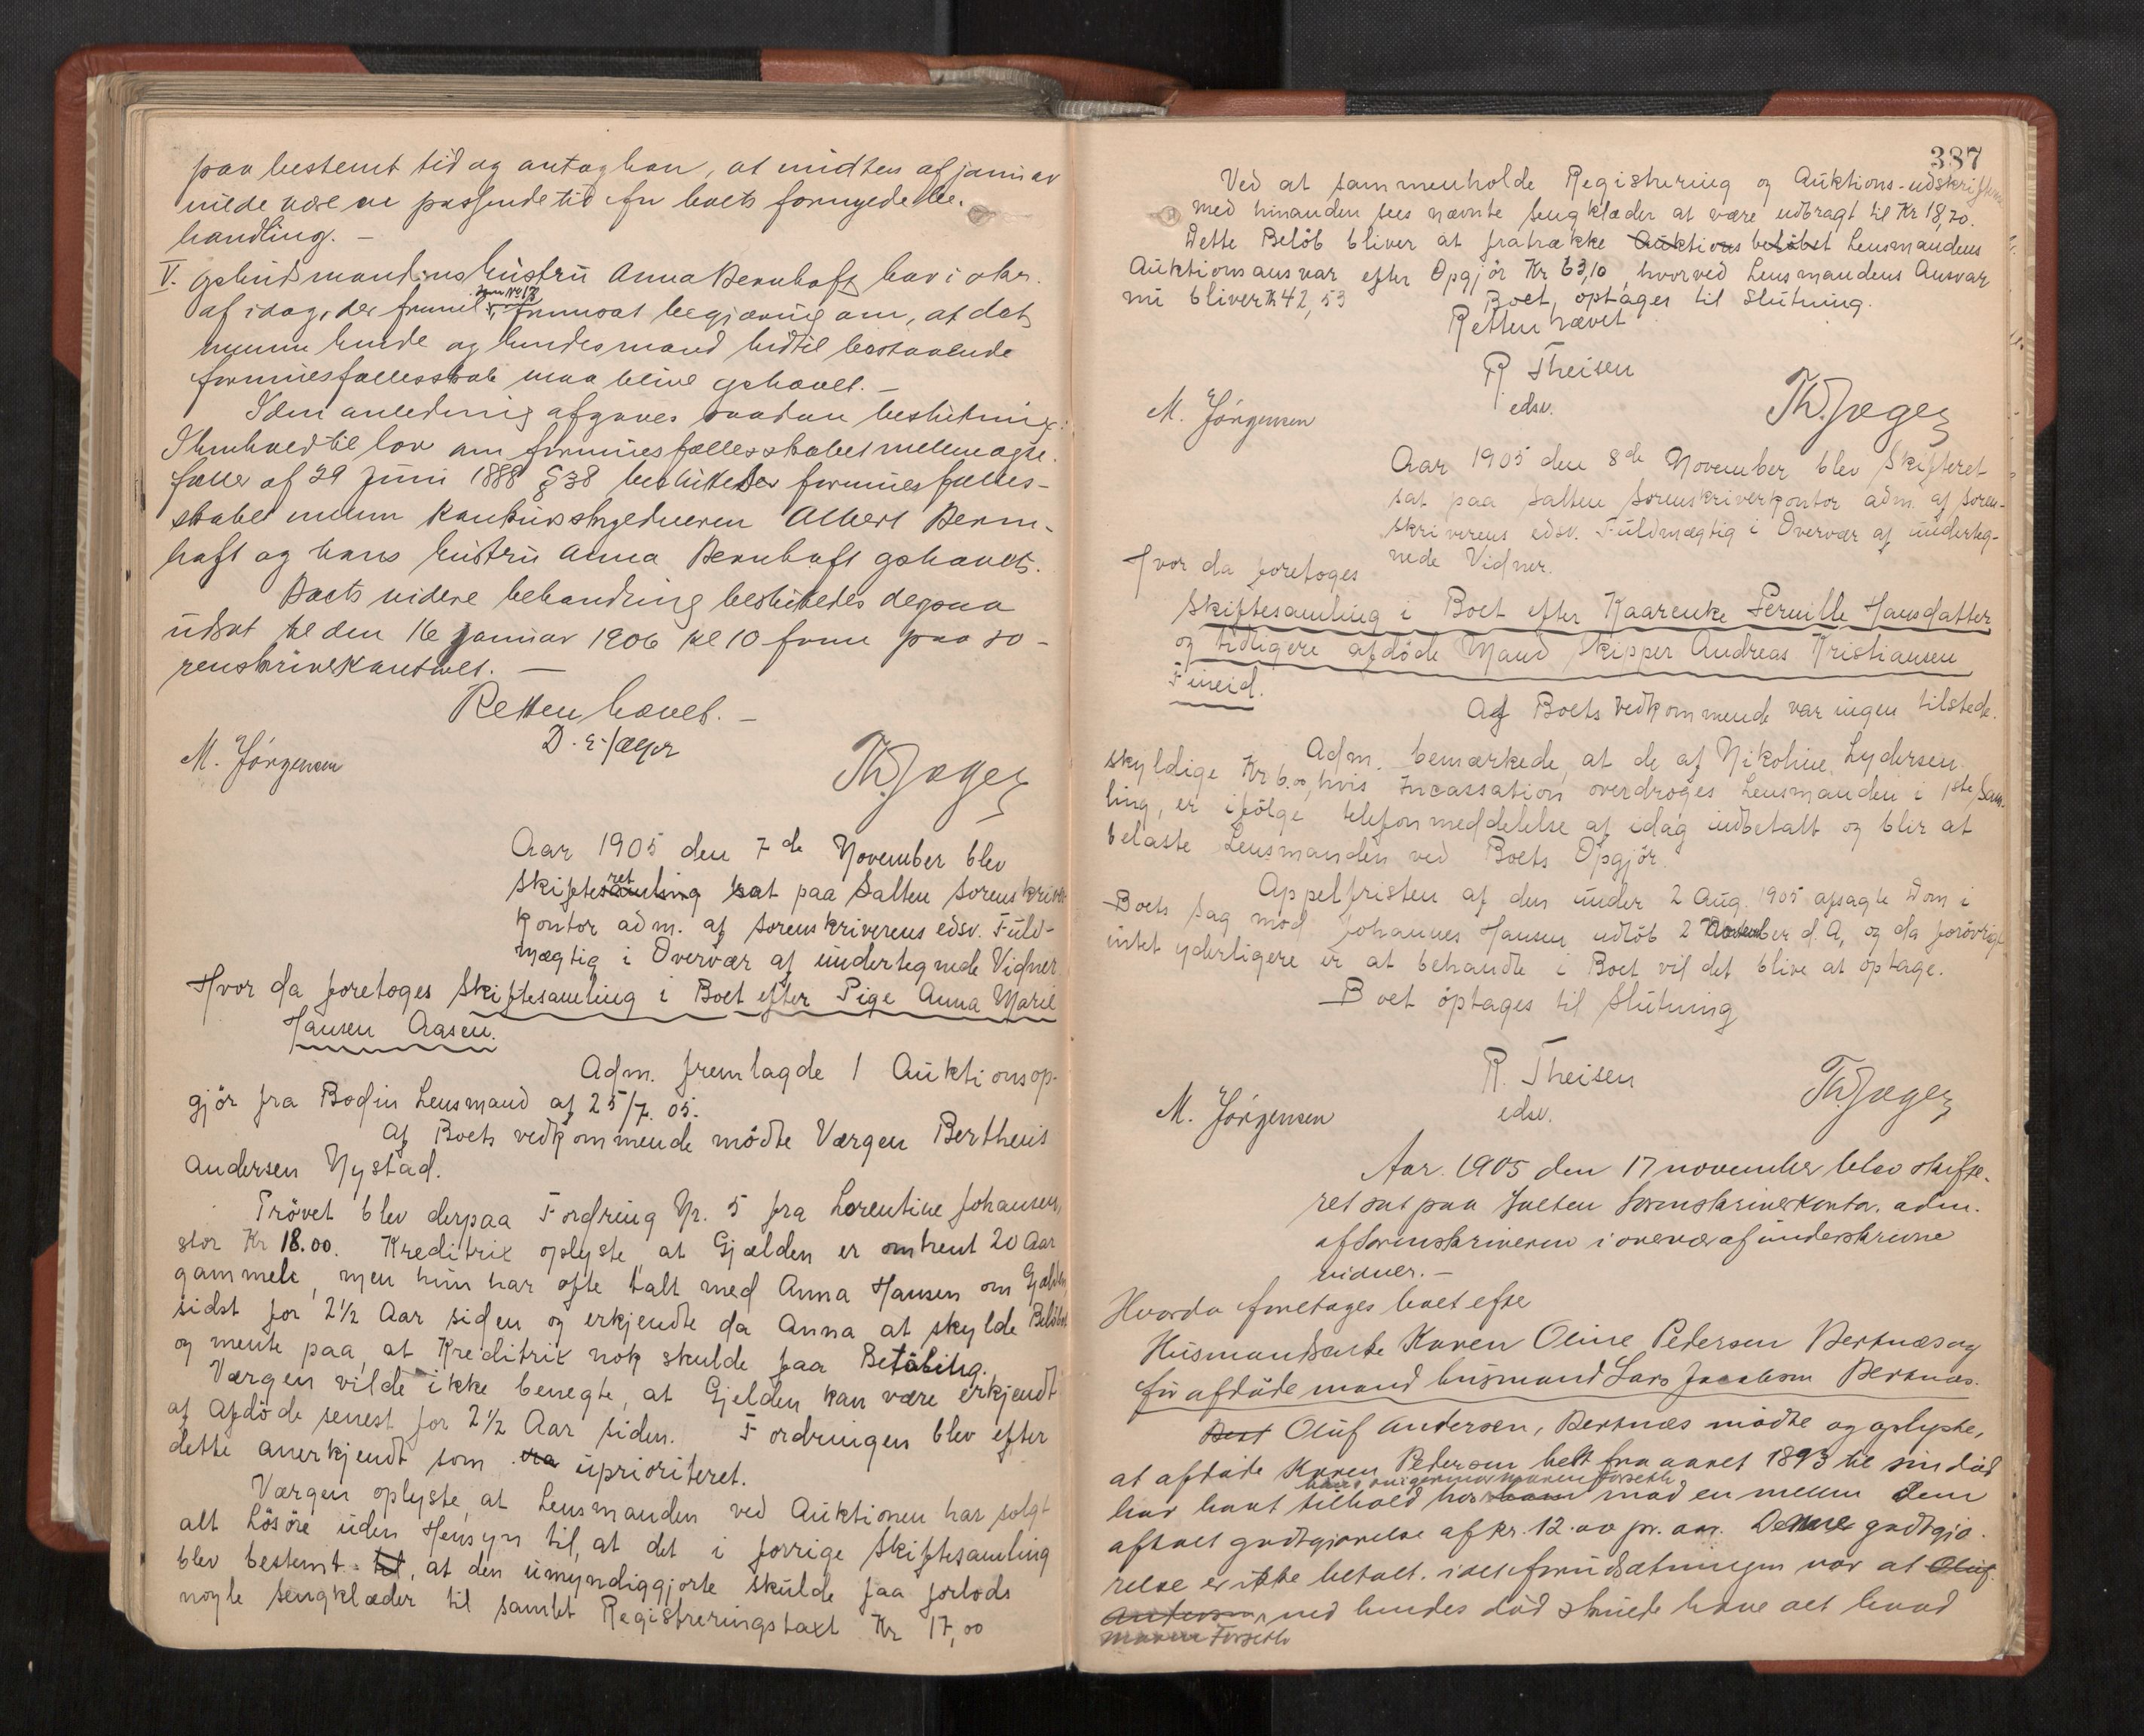 paa bestemt tid og antog han, at midten af januar
vilde være en passende tid for boets fornyede be-
handling. -
V. hustru Anna Bernhoft har i skr.
af idag, der freml. som No 17, fremsat begjæring om, at det
mellem hende og hendes mand hidtil bestaaende
formuesfællesskab maa blive ophævet. -
I den anledning afgaves saadan beslutning:
I henhold til lov om formuesfællesskabet mellem ægte-
fæller af 29 Juni 1888 § 38 besluttedes formuesfælles-
skabet mellem Albert Bern-
hoft og hans hustru Anna Bernhoft ophævet.
Boets videre behandling besluttedes derpaa
udsat til den 16 januar 1906 kl 10 form paa so-
renskriverkontoret. -
Retten hævet. -
D. E. Jæger
M. Jörgensen
Th. Jæger
Aar 1905 den 7de November blev
Skifteret sat paa Salten Sorenskriver
kontor adm. af Sorenskriverens edsv. Fuld-
mægtig i Overvær af undertegnede Vidner
Hvor da foretoges Skiftesamling i Boet efter Pige Anna Marie
Hansen Aasen.
Adm. fremlagde 1 Auktionsop-
gjör fra Bodin Lensmand af 25/7. 05.
Af Boets vedkommende mödte Værgen Bertheus
Andersen Nystad.
Prövet blev derpaa Fordring Nr. 5 fra Lorentine Johansen,
stor Kr 18.00. Kreditrix oplyste, at Gjælden er omtrent 20 Aar
gammel, men hun har ofte talt med Anna Hansen om Gjælden
sidst for 2½ Aar siden og erkjendte da Anna at skylde Belöbet
og mente paa, at Kreditrix nok skulde faa Betaling.
Værgen vilde ikke benegte, at Gjelden kan være erkjendt
af Afdöde senest for 2½ Aar siden. Fordringen blev efter
dette anerkjendt som uprioriteret.
Værgen oplyste, at Lensmanden ved Auktionen har solgt
alt Lösöre uden Hensyn til, at det i forrige Skiftesamling
blev bestemt til, at den umyndiggjorte skulde faa forlods
nogle Sengklæder til samlet Registreringstaxt Kr 17,00
387
Ved at sammenholde Registrering og Auktions-udskriften
med hinanden sees nævnte Sengklæder at være udbragt til Kr 18,70.
Dette Belöb bliver at fratrække Auktionsbelöbet Lensmandens
Auktionsansvar efter Opgjör Kr 63,10, hvorved Lensmandens Ansvar
nu bliver Kr 42,53
Boet, optages til Slutning.
Retten hævet
R Theisen
edsv.
M. Jörgensen
Th. Jæger
Aar 1905 den 8de November blev Skifteret
sat paa Salten Sorenskriverkontor adm. af Soren-
skriverens edsv. Fuldmægtig i Overvær af underteg-
nede Vidner.
Hvor da foretoges
Skiftesamling i Boet efter Kaarenke Pernille Hansdatter
og tidligere afdöde Mand Skipper Andreas Kristiansen
Fineid.
Af Boets Vedkommende var ingen tilstede.
Adm. bemærkede, at de af Nikoline Lydersen
skyldige Kr 6.00, hvis Incassation overdroges Lensmanden i 1ste Sam-
ling, er ifölge telefonmeddelelse af idag indbetalt og blir at
belaste Lensmanden ved Boets Opgjör.
Appelfristen af den under 2 Aug. 1905 afsagte Dom i
Boets Sag mod Johannes Hansen udlöb 2 November d. A, og da forövrigt
intet yderligere er at behandle i Boet vil det blive at optage.
Boet optages til Slutning
R. Theisen
edsv.
M. Jörgensen
Th. Jæger
Aar. 1905 den 17 november blev skifte-
ret sat paa Salten Sorenskriverkontor. adm.
af Sorenskriveren i overvær af underskrevne
vidner. -
Hvorda foretages boet efter
Husmandsenke Karen Oline Pedersen Bertnæs og
før afdöde mand husmand Lars Jacobsen Bertnæs.
Oluf Andersen, Bertnæs mödte og oplyste,
at afdöde Karen Pedersen helt fra aaret 1893 til sin död
har havt tilhold hos mod en mellem dem
aftalt godtgjørelse af kr. 12.00 pr. aar. Denne godtgjö-
relse er ikke betalt. idet forudsætningen var at Oluf
Andersen, ved hendes död skulde have alt hvad
Maren Forseth